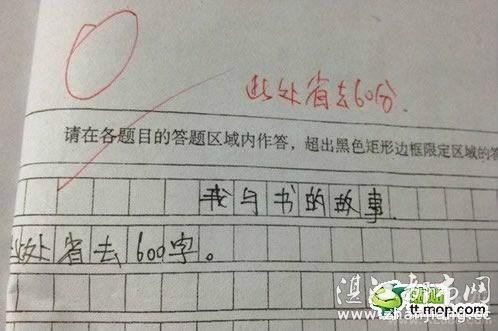 此处省去60分.
请在各题目的答题区域内作答，超出黑色矩形边框限定区域的答
我与书的故事
此处省去600字。
湛江都市网
tt.mop.com